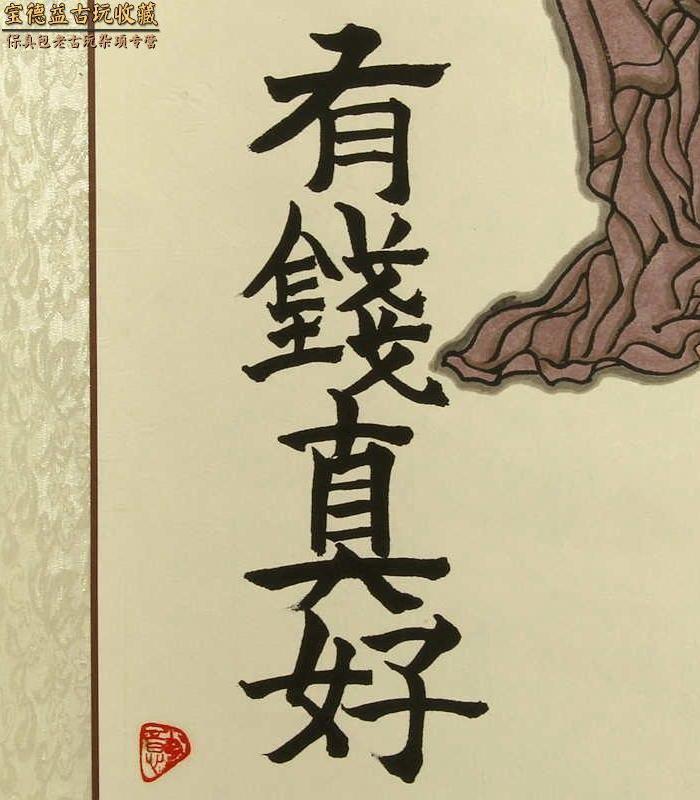 宝德益古玩收藏
保真包老古玩杂项专营
有錢真好